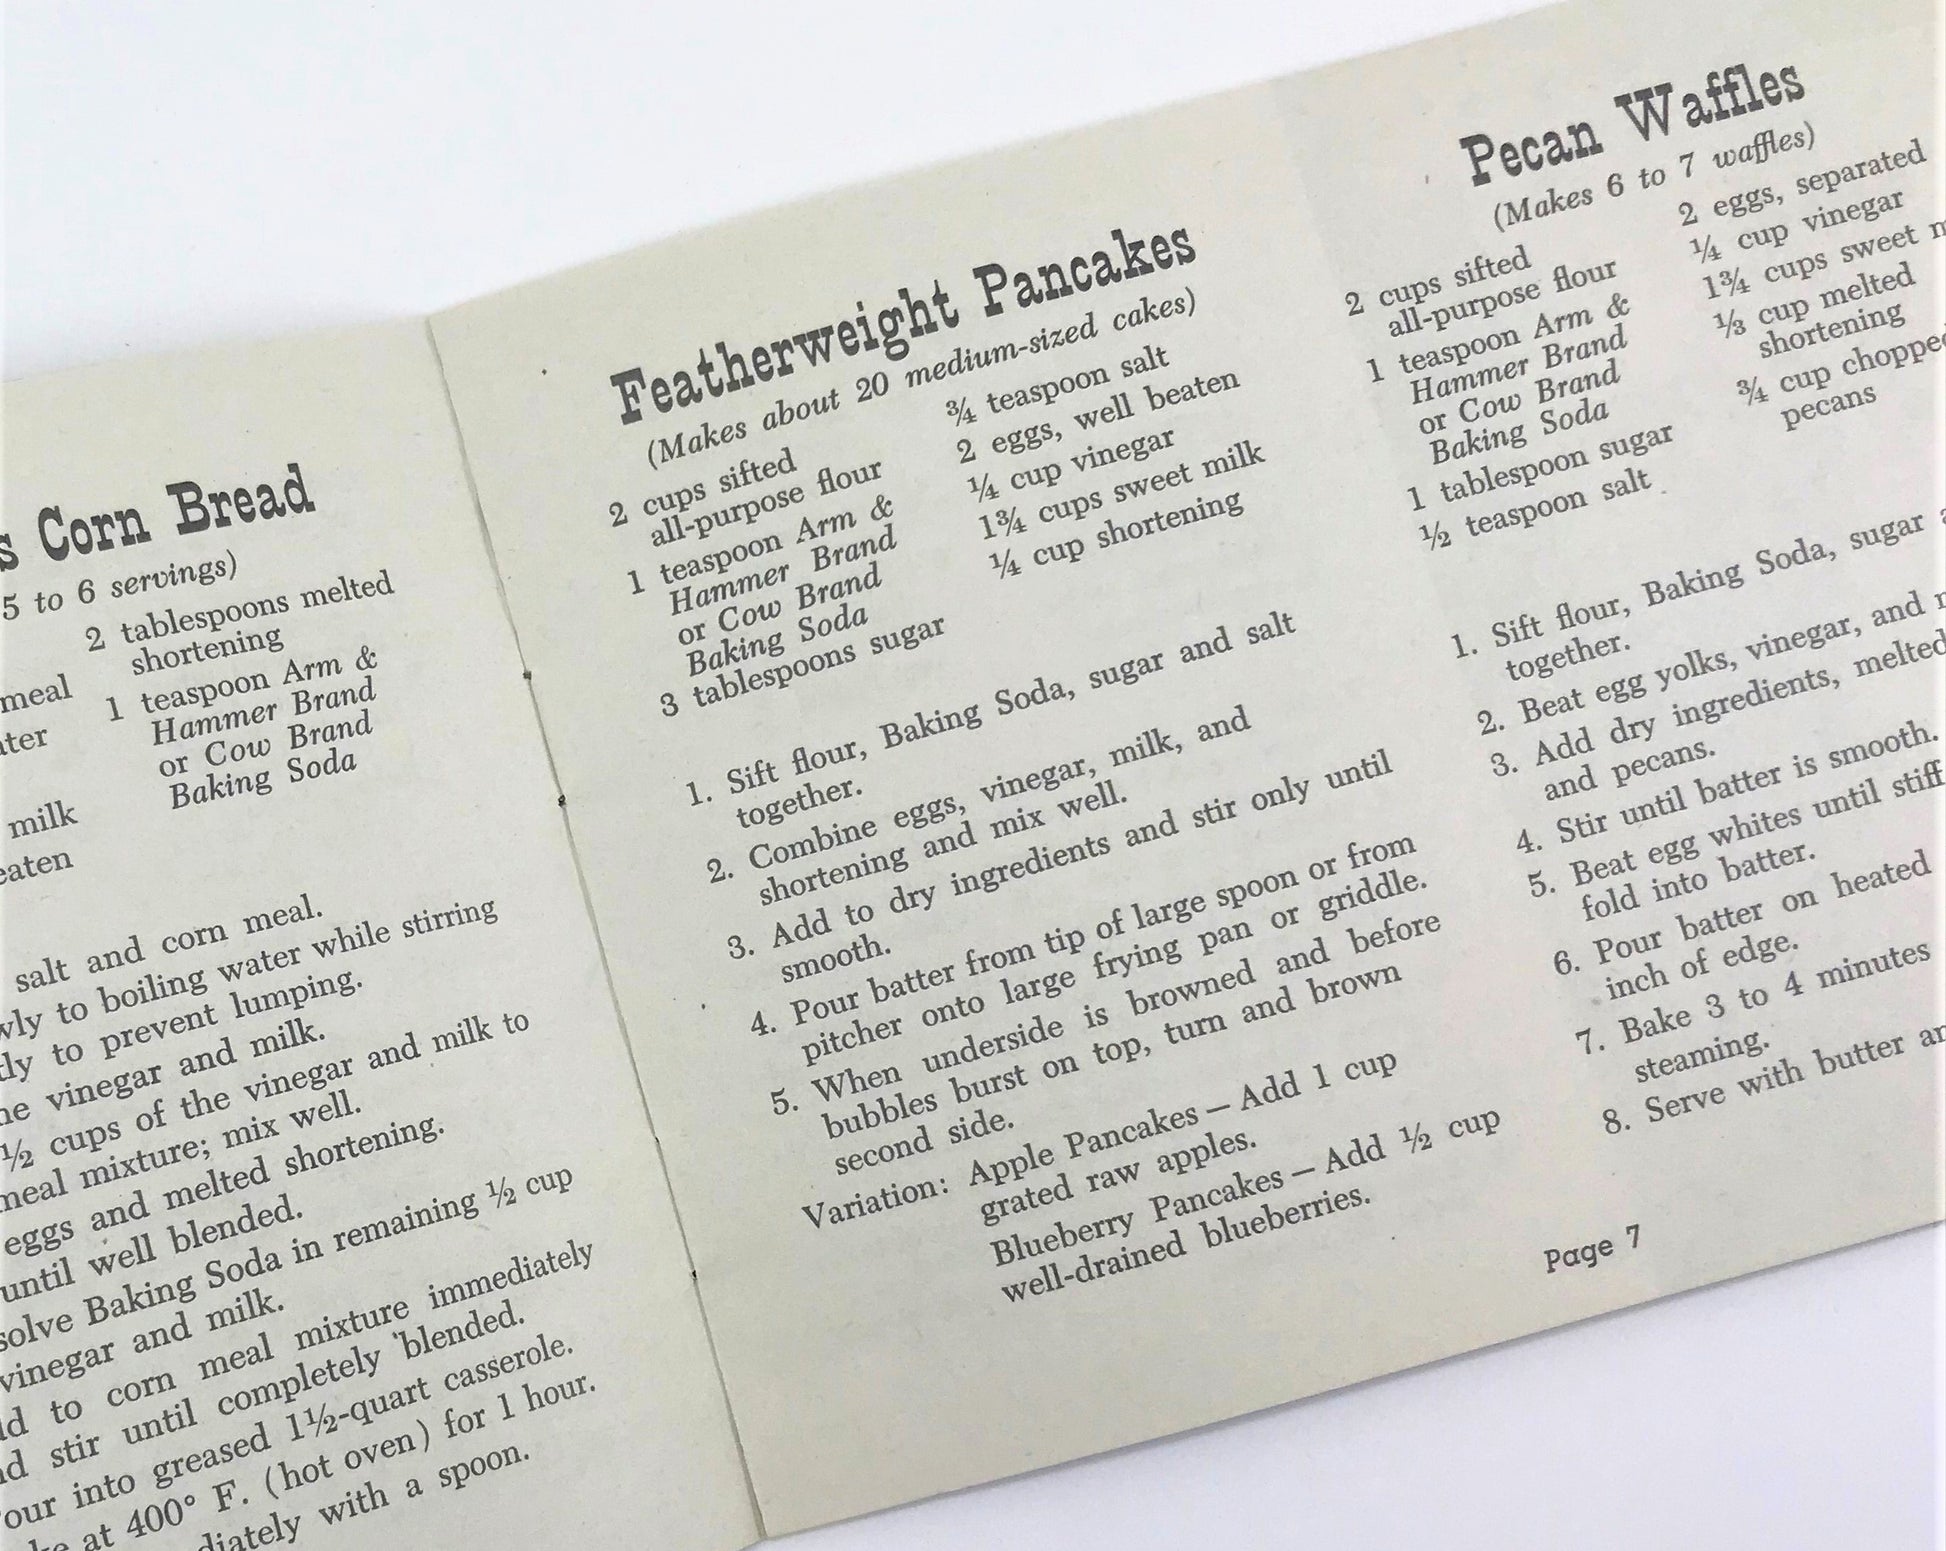 s Corn Bread
5 to 6 servings)
2 tablespoons melted
shortening
1 teaspoon Arm &
Hammer Brand
or Cow Brand
Baking Soda
meal
milk
salt and corn meal.
to boiling water while stirring
to prevent lumping.
vinegar and milk.
½ cups of the vinegar and milk to
meal mixture; mix well.
eggs and melted shortening.
until well blended.
solve Baking Soda in remaining ½ cup
vinegar and milk.
to corn meal mixture immediately
stir until completely blended.
our into greased 1½-quart casserole.
at 400° F. (hot oven) for 1 hour.
diately with a spoon.
Featherweight Pancakes
(Makes about 20 medium-sized cakes)
2 cups sifted
all-purpose flour
1 teaspoon Arm &
Hammer Brand
or Cow Brand
Baking Soda
3 tablespoons sugar
¾ teaspoon salt
2 eggs, well beaten
¼ cup vinegar
1¾ cups sweet milk
¼ cup shortening
1. Sift flour, Baking Soda, sugar and salt
together.
2. Combine eggs, vinegar, milk, and
shortening and mix well.
3. Add to dry ingredients and stir only until
smooth.
4. Pour batter from tip of large spoon or from
pitcher onto large frying pan or griddle.
5. When underside is browned and before
bubbles burst on top, turn and brown
second side.
Variation: Apple Pancakes — Add 1 cup
grated raw apples.
Blueberry Pancakes — Add ½ cup
well-drained blueberries.
Pecan Waffles
(Makes 6 to 7 waffles)
2 cups sifted
all-purpose flour
1 teaspoon Arm &
Hammer Brand
or Cow Brand
Baking Soda
1 tablespoon sugar
½ teaspoon salt
2 eggs, separated
¼ cup vinegar
1¾ cups sweet m
⅓ cup melted
shortening
¾ cup chopped
pecans
1. Sift flour, Baking Soda, sugar a
together.
2. Beat egg yolks, vinegar, and
3. Add dry ingredients, melted
and pecans.
4. Stir until batter is smooth.
5. Beat egg whites until stiff
fold into batter.
6. Pour batter on heated
inch of edge.
7. Bake 3 to 4 minutes
steaming.
8. Serve with butter an
Page 7